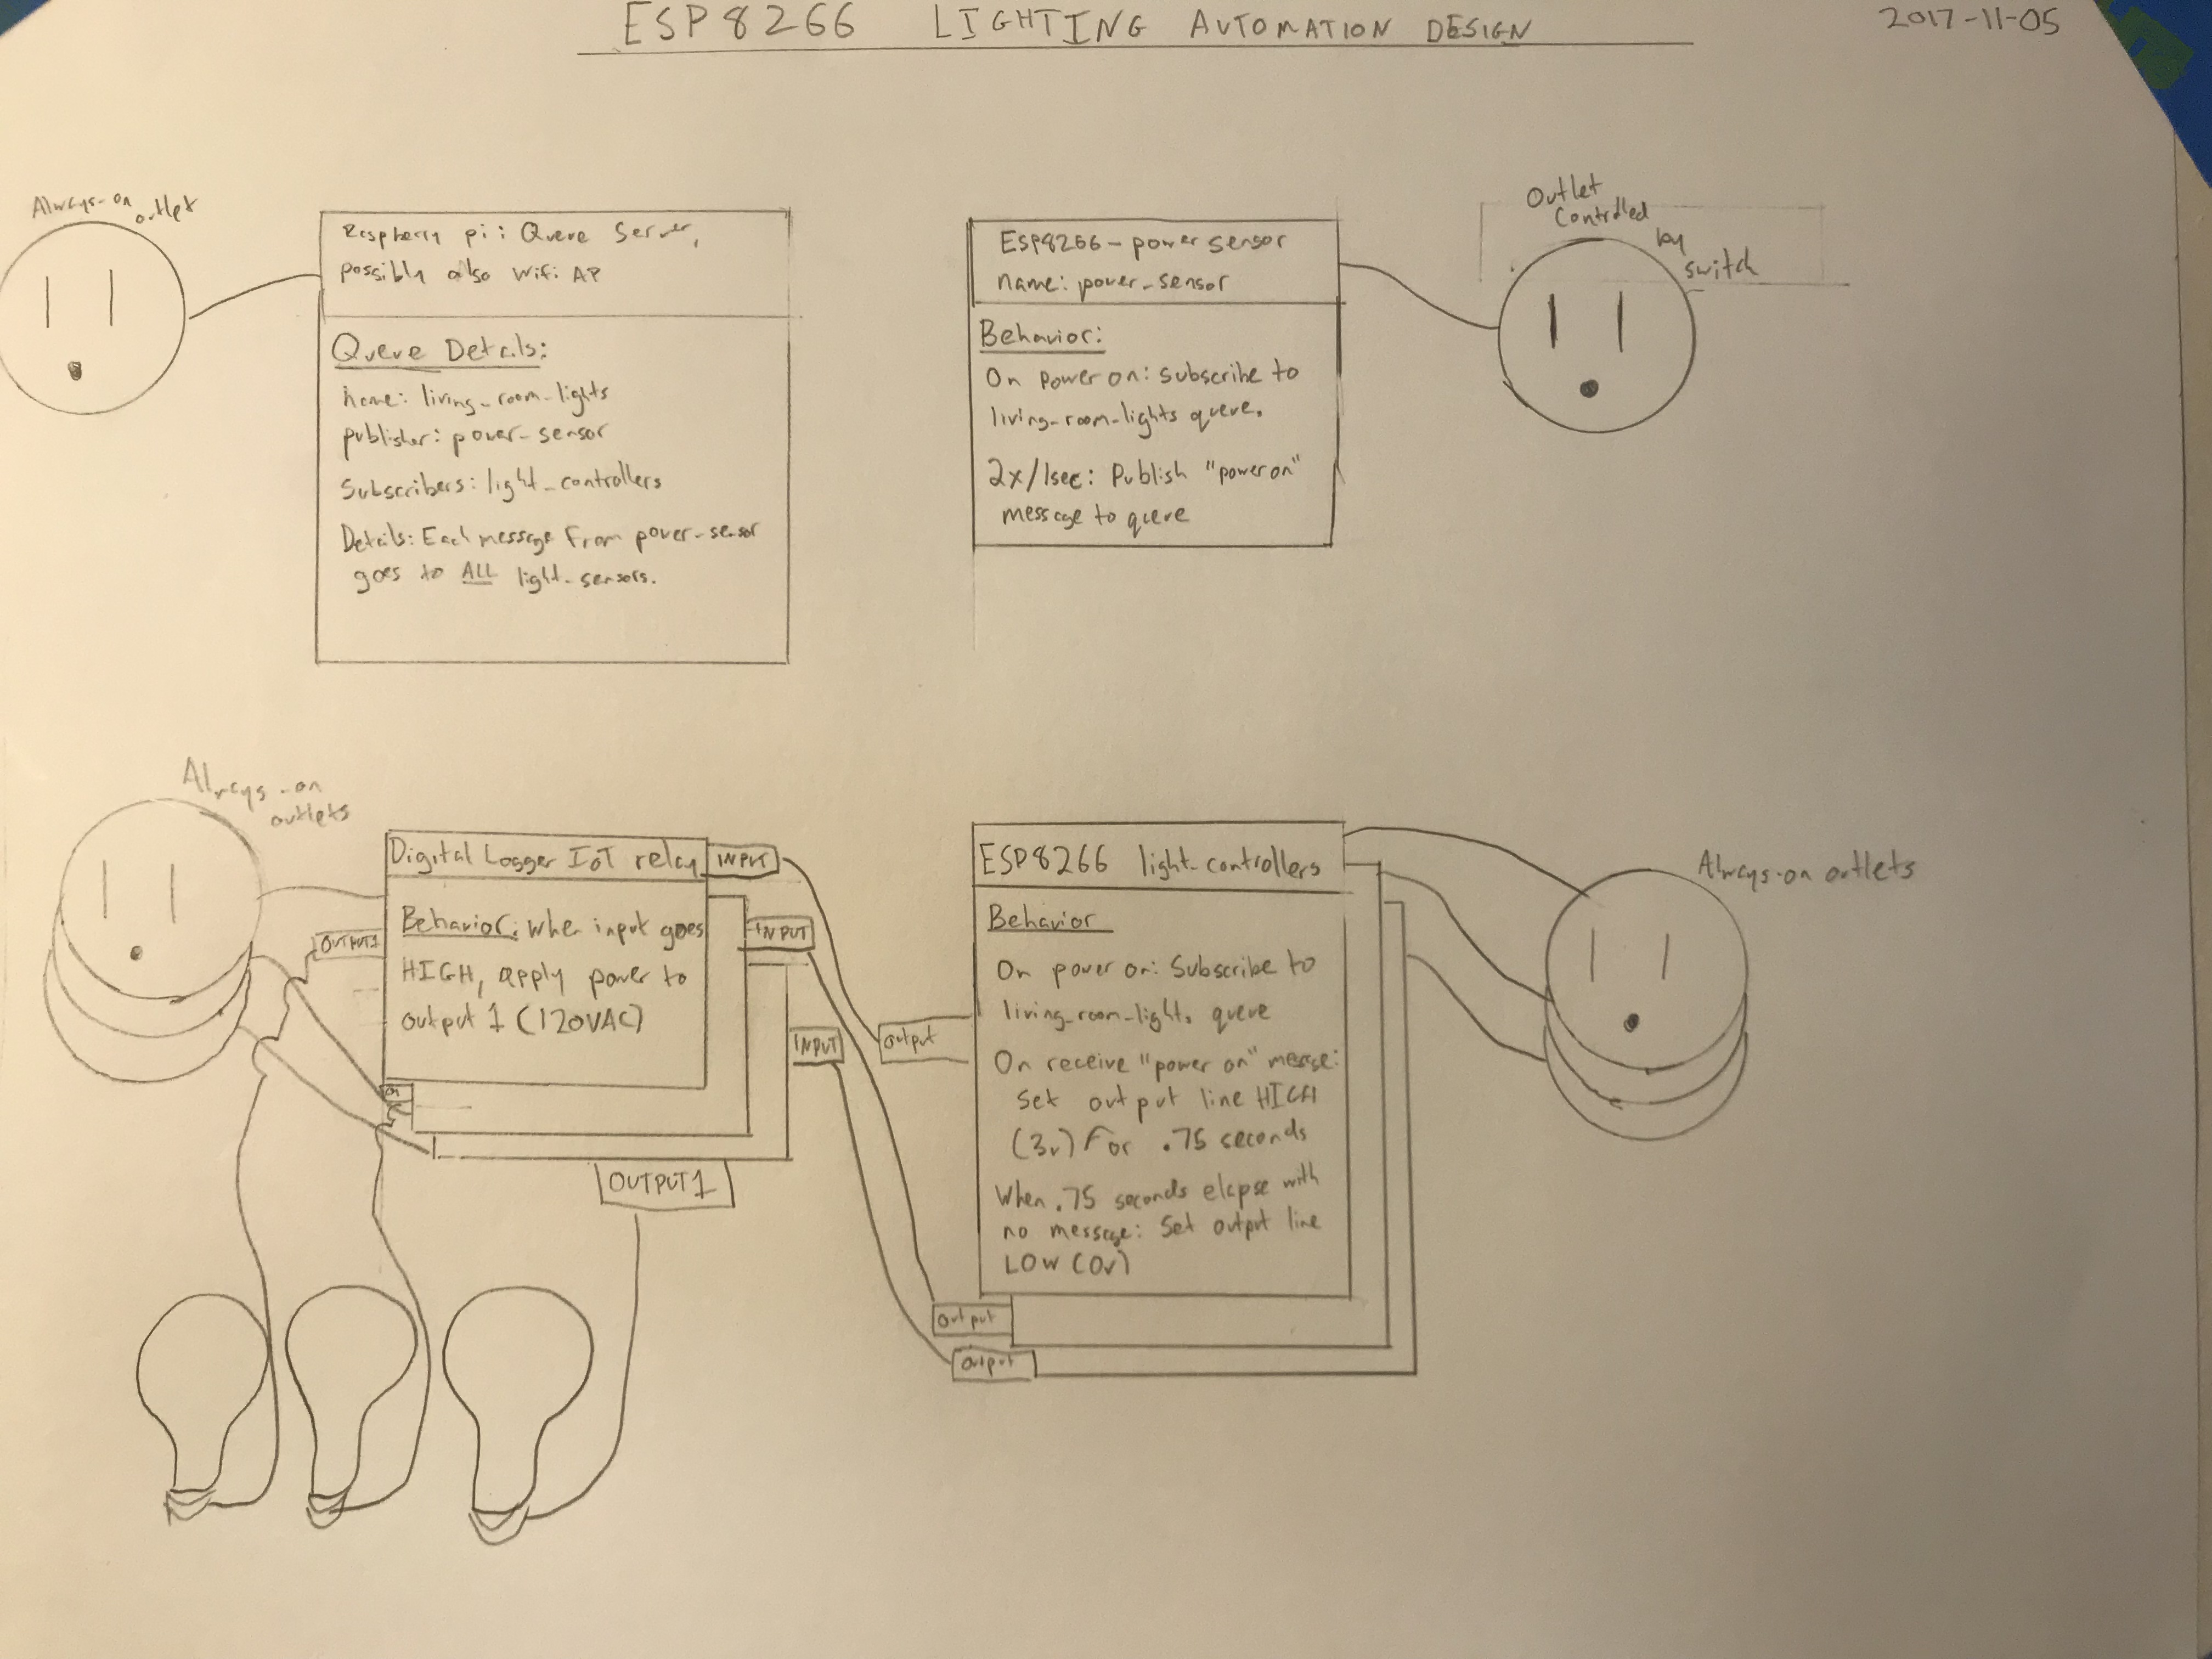 ESP8266 LIGHTING AUTOMATION DESIGN
2017-11-05
Always-on
outlet
Raspberry pi: Queue Server,
possibly also Wifi AP
Queue Details:
name: living_room_lights
publisher: power-sensor
Subscribers: light_controllers
Details: Each message from power-sensor
goes to ALL light-sensors.
ESP8266-power sensor
name: power_sensor
Behavior:
On power on: subscribe to
living_room_lights queue.
2x/1sec: Publish "power on"
message to queue
Outlet
Controlled
by
switch
Always-on
outlets
Digital Logger IoT relay
INPUT
Behavior: When input goes
HIGH, apply power to
output 1 (120VAC)
OUTPUT1
INPUT
INPUT
OUTPUT1
ESP8266 light-controllers
Behavior
On power on: Subscribe to
living_room_lights queue
On receive "power on" message:
Set output line HIGH
(3v) For .75 seconds
When .75 seconds elapse with
no message: Set output line
LOW (0v)
output
output
output
Always-on outlets